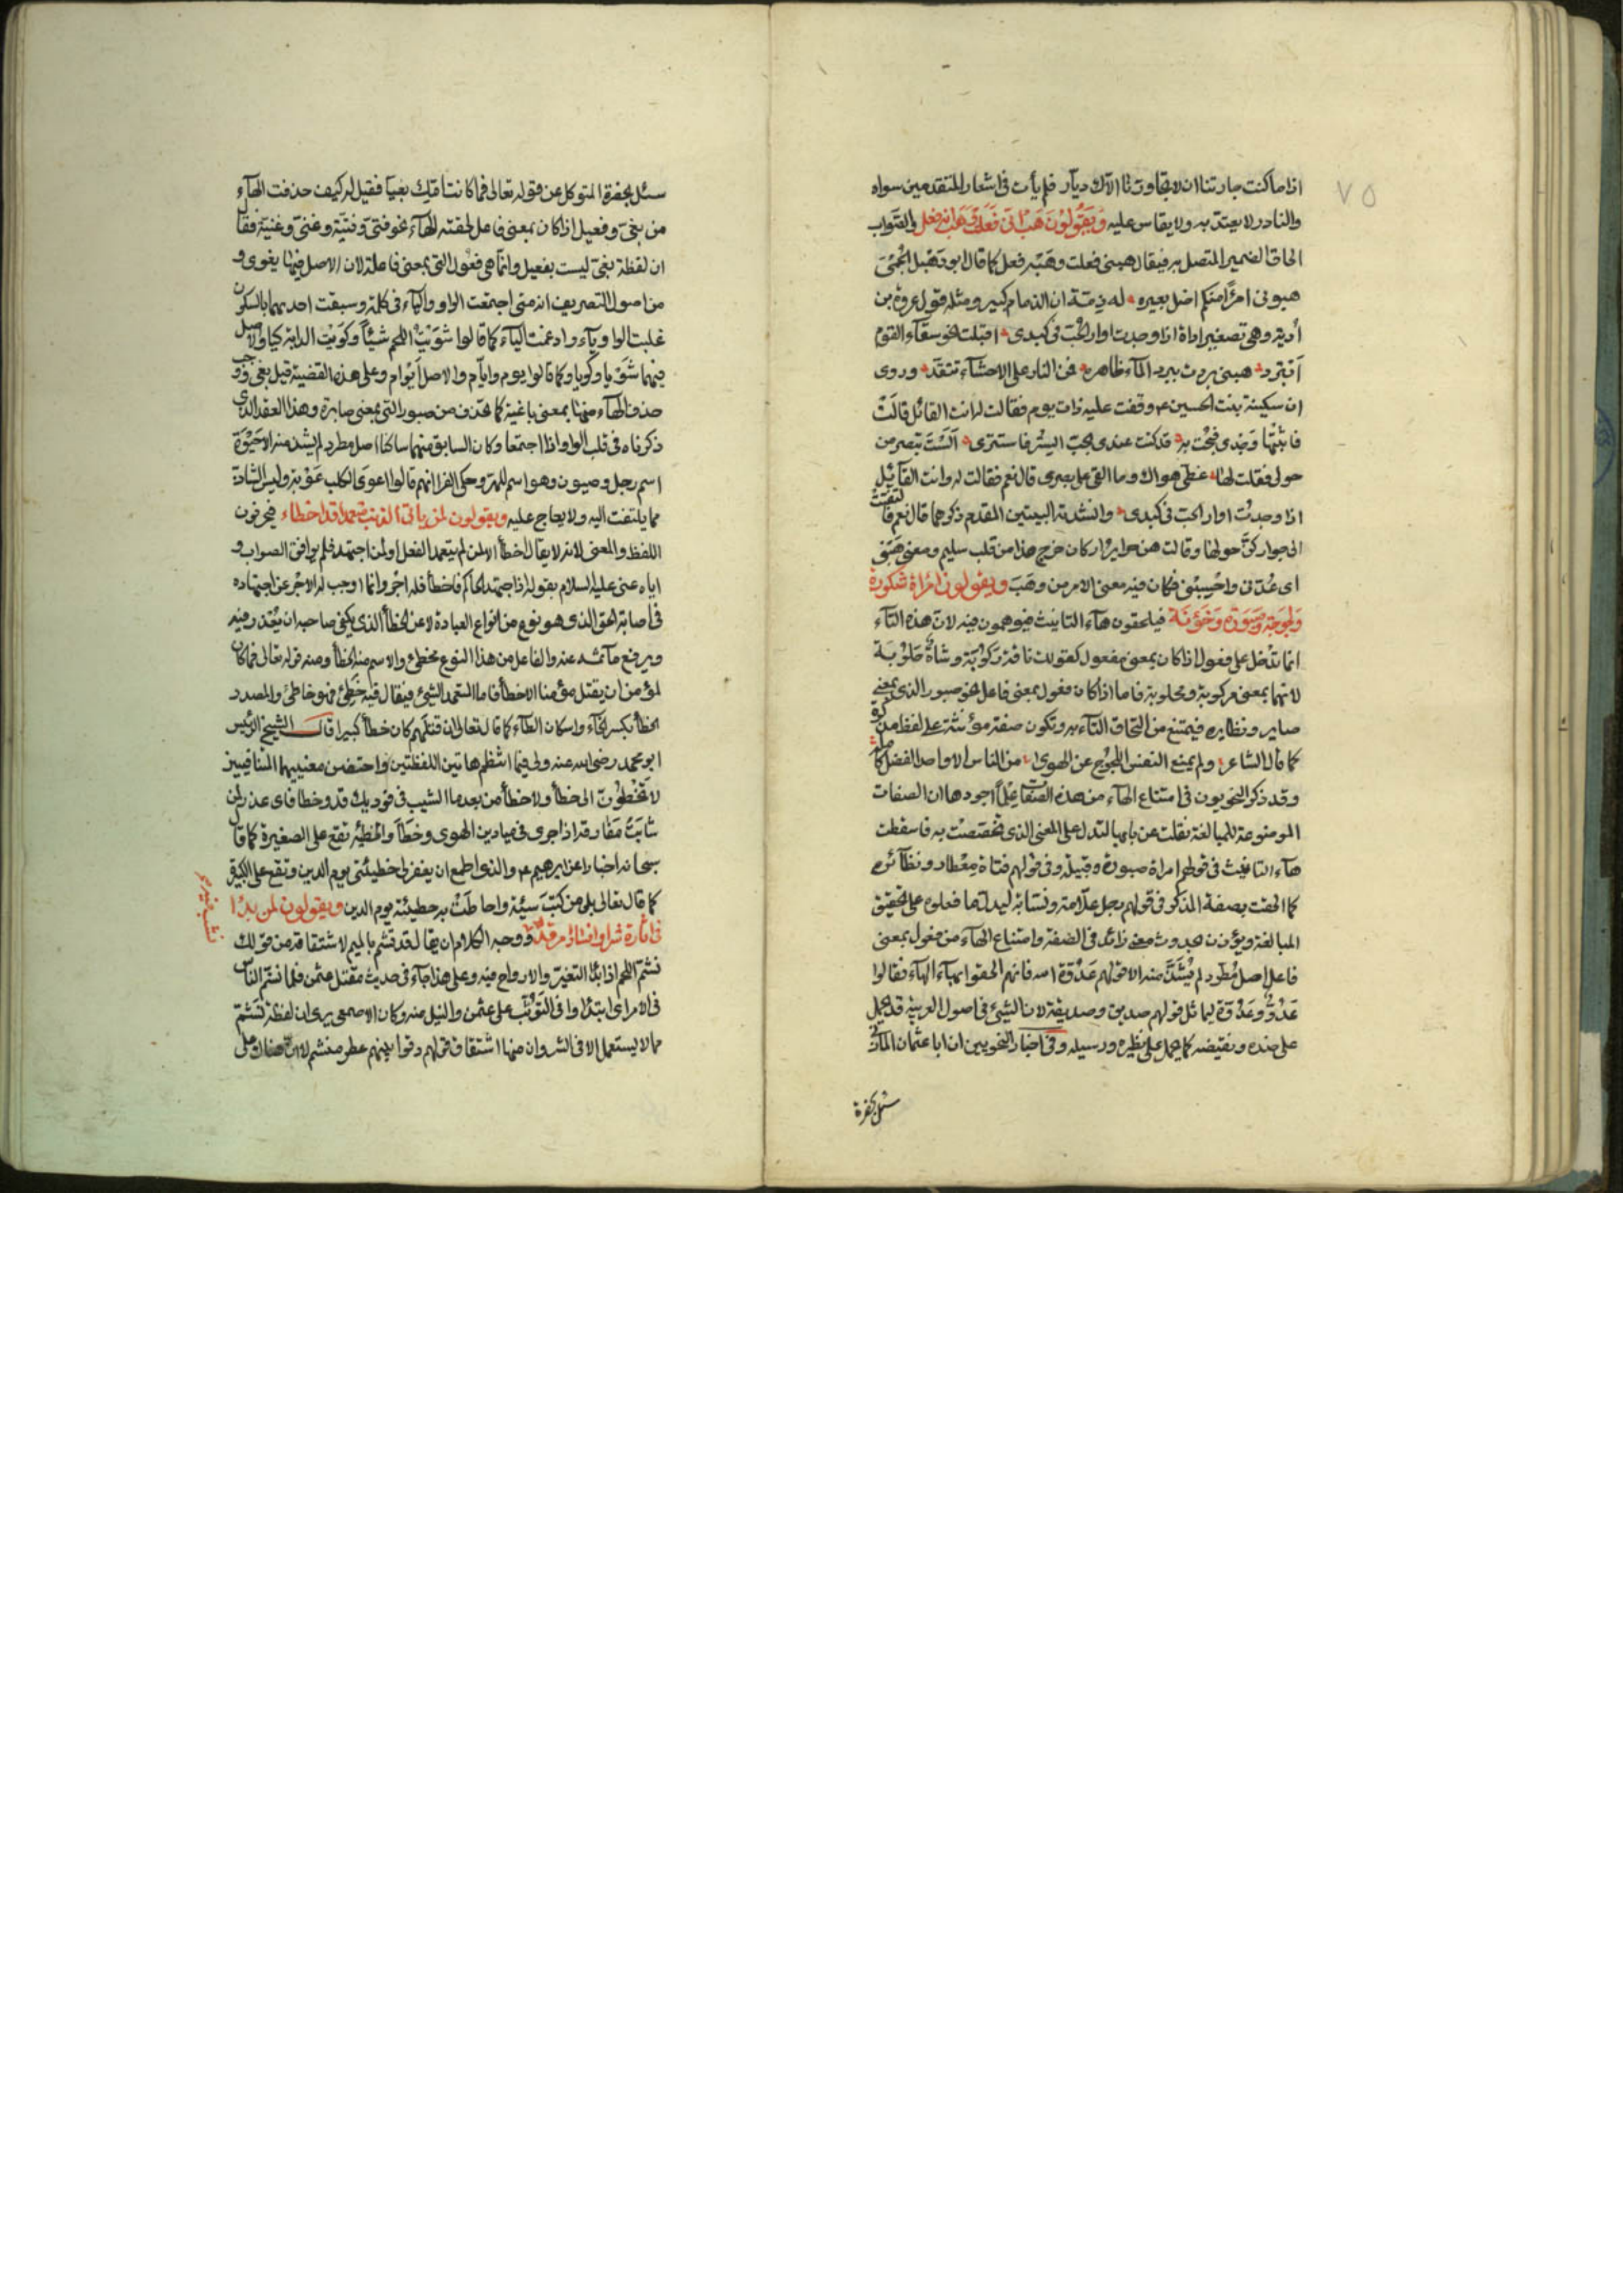 ٧٥
اذا ما كنت جارتنا ان لا يجاورنا الاك ديار فلم يأت فى اشعار المتقدمين سواه
والنادر لا يعتد به ولا يقاس عليه ويقولون هب انى فعلت وهب انه فعل والصواب
الحاق الضمير المتصل به فيقال هبنى فعلت وهبه فعل كما قال ابو دهبل الجمحى
هبونى امرأ منكم اضل بعيره له ذمة ان الذمام كبير ومثله قول عروة بن
أذينة وهى تصغير اداة اذا وجدت اوار الحب فى كبدى اقبلت نحو سقاء القوم
أبترد هبنى بردت ببرد الماء ظاهره فمن لنار على الاحشاء تتقد وروى
ان سكينة بنت الحسين ع وقفت عليه ذات يوم فقالت له انت القائل قالت
فابثثتها وجدى فبحت به قد كنت عندى تحب الستر فاستتر ألست تبصر من
حولى فقلت لها غطى هواك وما القى على بصرى قال نعم فقالت له وانت القائل
اذا وجدت اوار الحب فى كبدى وانشدته البيتين المقدم ذكرهما قال نعم فالتفتت
الى جوار كن حولها وقالت هن حرائر ان كان خرج هذا من قلب سليم ومعنى هبنى
اى عدنى واحسبنى فكان فيه معنى الامر من وهب ويقولون امرأة شكورة
ولجوجة وصبورة وخؤنة فيلحقون هاء التانيث فيوهمون فيه لان هذه التاء
انما تدخل على فعول اذا كان بمعنى مفعول كقولك ناقة ركوبة وشاة حلوبة
لانهما بمعنى مركوبة ومحلوبة فاما اذا كان فعول بمعنى فاعل نحو صبور الذى بمعنى
صابر ونظايره فيمتنع من التحاق التاء به وتكون صفة مؤنثة على لفظ مذكره
كما قال الشاعر ولم يمنع النفس اللجوج عن الهوى من الناس الا واحد الفضل كامله
وقد ذكر النحويون فى امتناع الهاء من هذه الصفات عللا اجودها ان الصفات
الموضوعة للمبالغة نقلت عن بابها لتدل على المعنى الذى تخصصت به فاسقطت
هاء التانيث فى قولهم امراة صبورة وقتيلة وفى قولهم فتاة معطار ونظائره
كما الحقت بصفة المذكر فى قولهم رجل علامة ونسابة ليدل ما فعلوه على تحقيق
المبالغة ويؤذن بحدوث معنى زائد فى الصفة وامتناع الهاء من فعول بمعنى
فاعل اصل مطرد لم يشذ منه الا قولهم عدوة الله فانهم الحقوا بها الهاء فقالوا
عدو وعدوة ليماثل قولهم صديق وصديقة لان الشئ فى اصول العربية قد يحمل
على ضده ونقيضه كما يحمل على نظيره ورسيله وفى اخبار النحويين ان ابا عثمان المازنى
سئل بحضرة
سئل بحضرة المتوكل عن قوله تعالى فما كانت امك بغيا فقيل له كيف حذفت الهاء
من بغى وفعيل اذا كان بمعنى فاعل لحقته الهاء نحو فتى وفتية وغنى وغنية فقال
ان لفظة بغى ليست بفعيل وانما هى فعول التى بمعنى فاعلة لان الاصل فيها بغوى و
من اصول التصريف انه متى اجتمعت الواو والياء فى كلمة وسبقت احديهما بالسكون
غلبت الواو ياء وادغمت الياء كما قالوا شويت اللحم شيئا وكويت الدابة كيا والاصل
فيهما شويا وكويا وكما قالوا يوم وايام والاصل ايوام وعلى هذه القضية قيل بغى ووجب
حذف الهاء منها بمعنى باغية كما تحذف من صبور التى بمعنى صابرة وهذا العقد الذى
ذكرناه فى قلب الواو اذا اجتمعا وكان السابق منهما ساكنا اصل مطرد لم يشذ منه الا حيوة
اسم رجل وضيون وهو اسم للهر وحكى الفرا انهم قالوا عوى الكلب عوية وليس الشاذة
مما يلتفت اليه ولا يعاج عليه ويقولون لمن ياتى الذنب متعمدا قد اخطاء فيحرفون
اللفظ والمعنى لانه لا يقال اخطأ الا لمن لم يتعمد الفعل او لمن اجتهد فلم يوافق الصواب و
اياه عنى عليه السلام بقوله اذا اجتهد الحاكم فاخطأ فله اجر وانما اوجب له الاجر عن اجتهاده
فى اصابة الحق الذى هو نوع من انواع العبادة لا عن الخطأ الذى يكفى صاحبه ان يعذر فيه
ويرفع مأثمه عنه والفاعل من هذا النوع مخطئ والاسم منه الخطأ ومنه قوله تعالى فما كان
لمؤمن ان يقتل مؤمنا الا خطأ فاما المتعمد الشئ فيقال فيه خطئ فهو خاطئ والمصدر
الخطأ بكسر الخاء واسكان الطاء كما قال تعالى ان قتلهم كان خطأ كبيرا قال الشيخ الرئيس
ابو محمد رضى الله عنه ولى فيما انتظم هاتين اللفظتين واحتضن معنييهما المتنافيين
لا تخطون الى خطأ ولا خطأ من بعد ما الشيب فى فوديك قد وخطا فاى عذر لمن
شابت مفارقه اذا جرى فى ميادين الهوى وخطأ والخطيئة تقع على الصغيرة كما قال
سبحانه اخبارا عن ابرهيم ع والذى اطمع ان يغفر لى خطيئتى يوم الدين وتقع على الكبيرة
كما قال تعالى بلى من كسب سيئة واحاطت به خطيئته يوم الدين ويقولون لمن بدا
فى اثارة شر او افساد امر قد نشب فيه ووجه الكلام ان يقال قد نشم بالميم لاشتقاقه من قولك
نشم اللحم اذا بدا التغير والارواح فيه وعلى هذا جاء فى حديث مقتل عثمن فلما نشم الناس
فى الامر اى ابتدأوا فى التوثب على عثمن والنيل منه وكان الاصمعى يرى ان لفظة نشم
مما لا يستعمل الا فى الشر وان منها اشتقاق قولهم دقوا بينهم عطر منشم لا ان هناك على